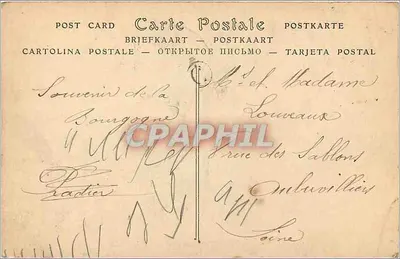 POST CARD Carte Postale POSTKARTE
BRIEFKAART — POSTKAART
CARTOLINA POSTALE — ОТКРЫТОЕ ПИСЬМО — TARJETA POSTAL
Souvenir de la
Bourgogne
Pradier
Mr et Madame
Louveaux
rue des Sablons
Aubervilliers
Seine
CPAPHIL